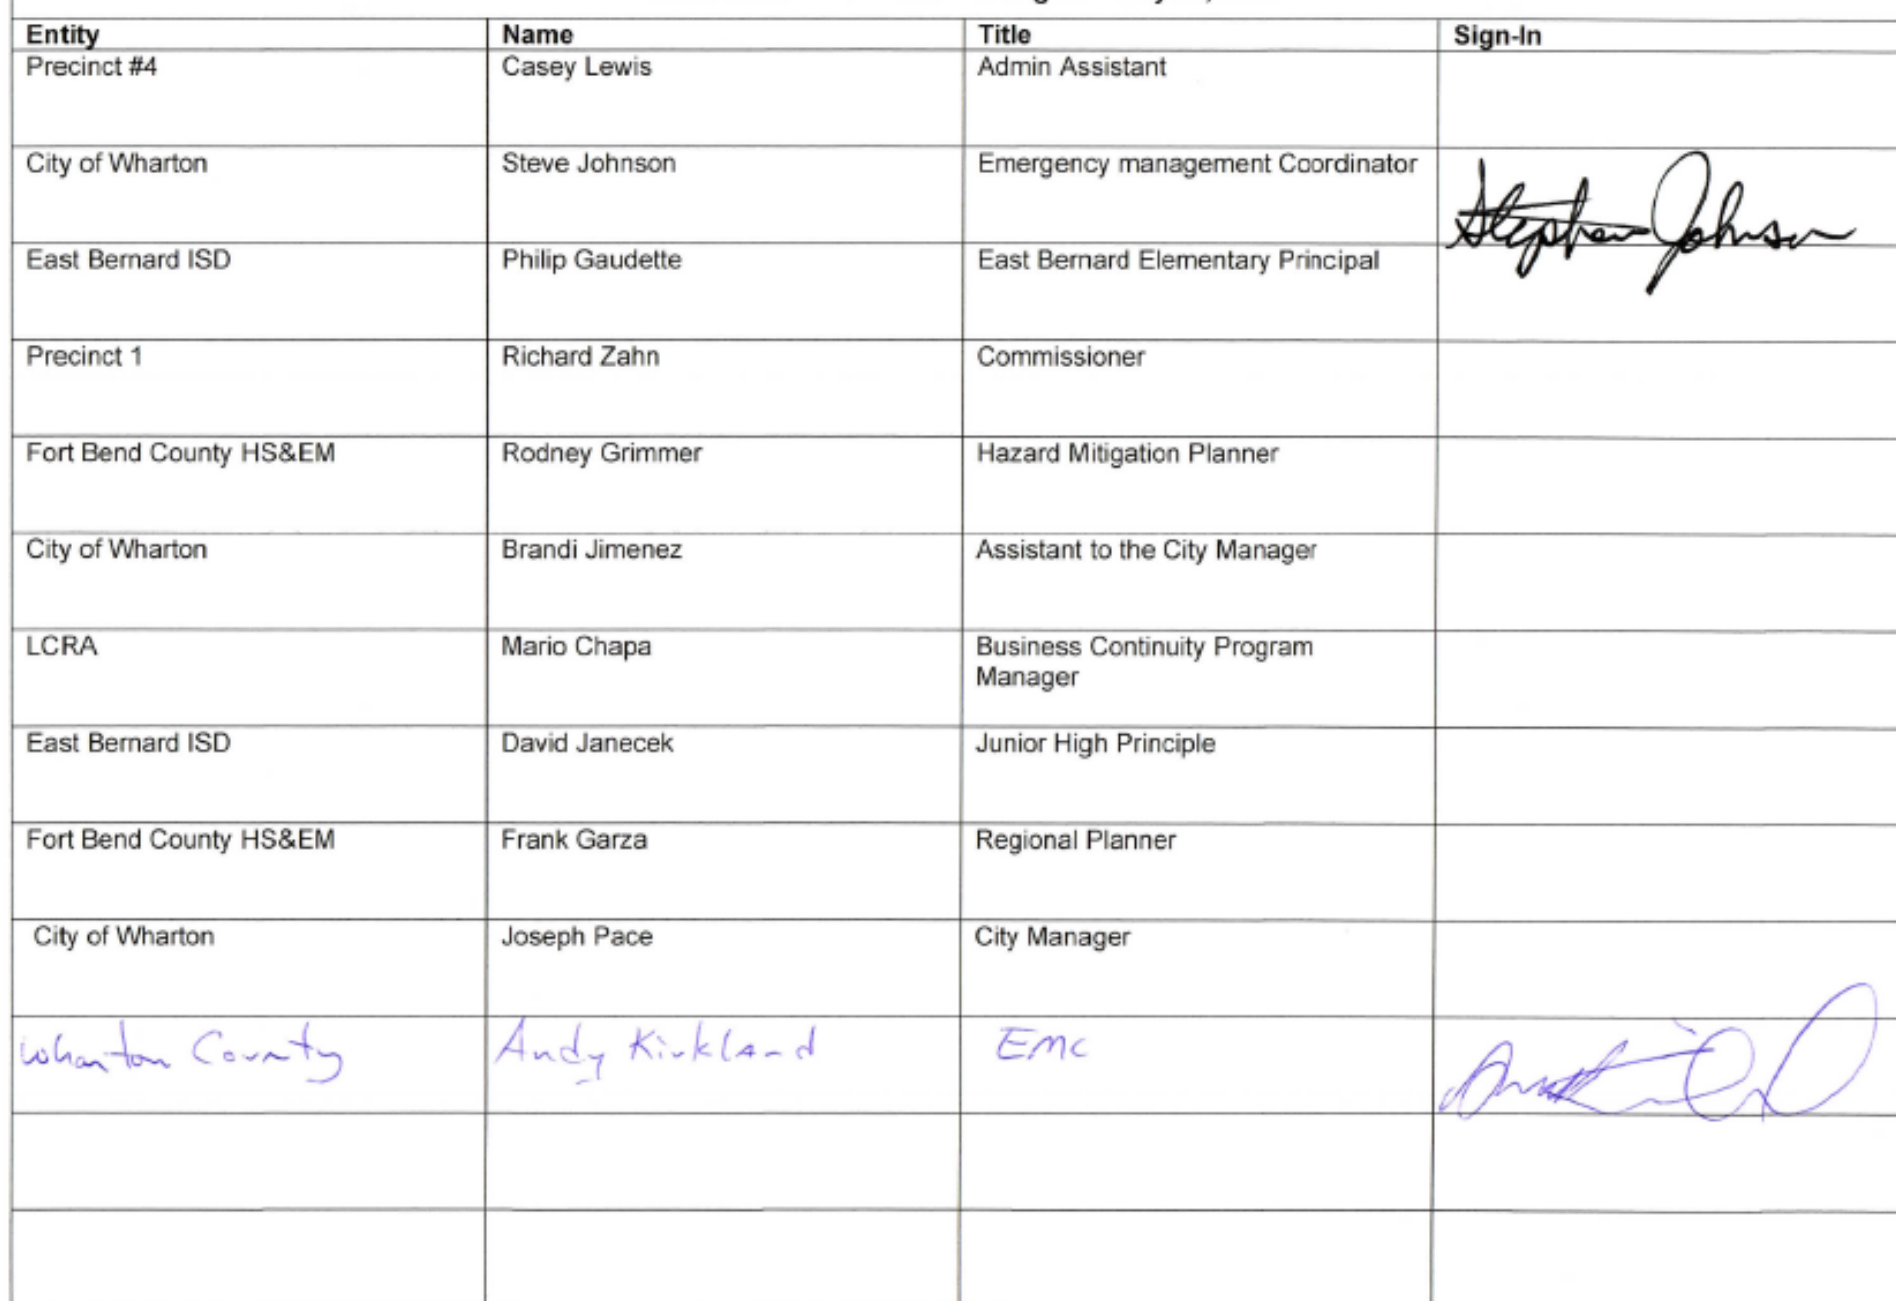 Entity Name Title Sign-In
Precinct #4 Casey Lewis Admin Assistant
City of Wharton Steve Johnson Emergency management Coordinator Stephen Johnson
East Bernard ISD Philip Gaudette East Bernard Elementary Principal
Precinct 1 Richard Zahn Commissioner
Fort Bend County HS&EM Rodney Grimmer Hazard Mitigation Planner
City of Wharton Brandi Jimenez Assistant to the City Manager
LCRA Mario Chapa Business Continuity Program
Manager
East Bernard ISD David Janecek Junior High Principle
Fort Bend County HS&EM Frank Garza Regional Planner
City of Wharton Joseph Pace City Manager
Wharton County Andy Kirkland EMC